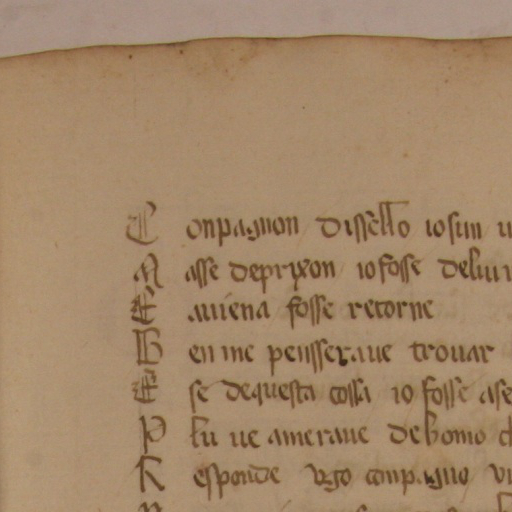 C onpagnon dissello io sun
M asse deprixon io fosse deliur
E auiena fosse retorne
B en me pensseraue trouar
E se dequesta cossa io fosse ase
P lu ue ameraue de homo
R esponde vgo conpagno